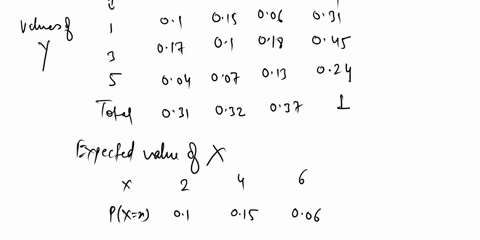 values of 1 0.1 0.15 0.06 0.31
Y 3 0.17 0.1 0.18 0.45
5 0.04 0.07 0.13 0.24
Total 0.31 0.32 0.37 1
Expected value of X
x 2 4 6
P(X=x) 0.1 0.15 0.06